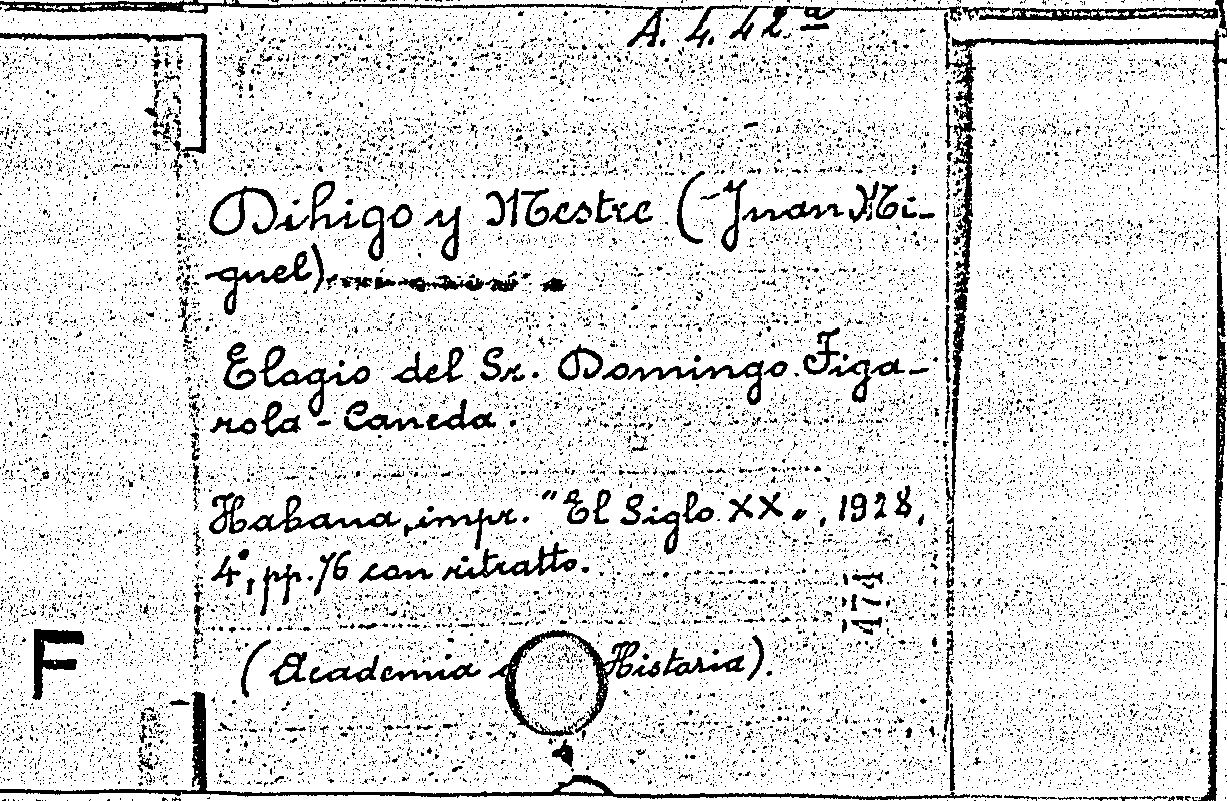 A. 4. 42.ª
Dihigo y Mestre (Juan Mi-
guel).
Elogio del Sr. Domingo Figa-
rola-Caneda.
Habana, impr. "El Siglo XX", 1928,
4°, pp. 76 con ritratto.
474
(Academia Historia).
F